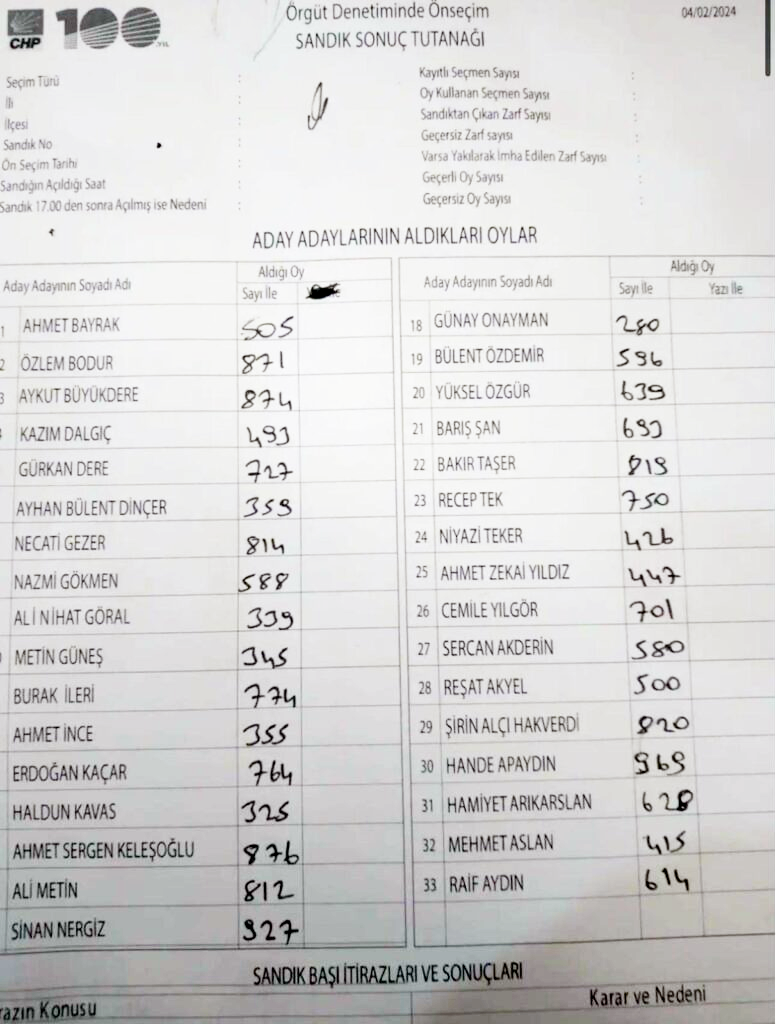 CHP 100.YIL
Örgüt Denetiminde Önseçim
SANDIK SONUÇ TUTANAĞI
04/02/2024
Seçim Türü :
İli :
İlçesi :
Sandık No :
Ön Seçim Tarihi :
Sandığın Açıldığı Saat :
Sandık 17.00 den sonra Açılmış ise Nedeni :
Kayıtlı Seçmen Sayısı :
Oy Kullanan Seçmen Sayısı :
Sandıktan Çıkan Zarf Sayısı :
Geçersiz Zarf sayısı :
Varsa Yakılarak İmha Edilen Zarf Sayısı :
Geçerli Oy Sayısı :
Geçersiz Oy Sayısı :
ADAY ADAYLARININ ALDIKLARI OYLAR
Aday Adayının Soyadı Adı
Aldığı Oy
Sayı İle
1 AHMET BAYRAK 505
2 ÖZLEM BODUR 871
3 AYKUT BÜYÜKDERE 874
KAZIM DALGIÇ 493
GÜRKAN DERE 727
AYHAN BÜLENT DİNÇER 359
NECATİ GEZER 814
NAZMİ GÖKMEN 588
ALİ NİHAT GÖRAL 339
METİN GÜNEŞ 345
BURAK İLERİ 774
AHMET İNCE 355
ERDOĞAN KAÇAR 764
HALDUN KAVAS 325
AHMET SERGEN KELEŞOĞLU 876
ALİ METİN 812
SİNAN NERGİZ 927
Aday Adayının Soyadı Adı
Aldığı Oy
Sayı İle Yazı İle
18 GÜNAY ONAYMAN 280
19 BÜLENT ÖZDEMİR 596
20 YÜKSEL ÖZGÜR 639
21 BARIŞ ŞAN 693
22 BAKIR TAŞER 819
23 RECEP TEK 750
24 NİYAZİ TEKER 426
25 AHMET ZEKAİ YILDIZ 447
26 CEMİLE YILGÖR 701
27 SERCAN AKDERİN 580
28 REŞAT AKYEL 500
29 ŞİRİN ALÇI HAKVERDİ 820
30 HANDE APAYDIN 969
31 HAMİYET ARIKARSLAN 628
32 MEHMET ASLAN 415
33 RAİF AYDIN 614
SANDIK BAŞI İTİRAZLARI VE SONUÇLARI
razın Konusu
Karar ve Nedeni